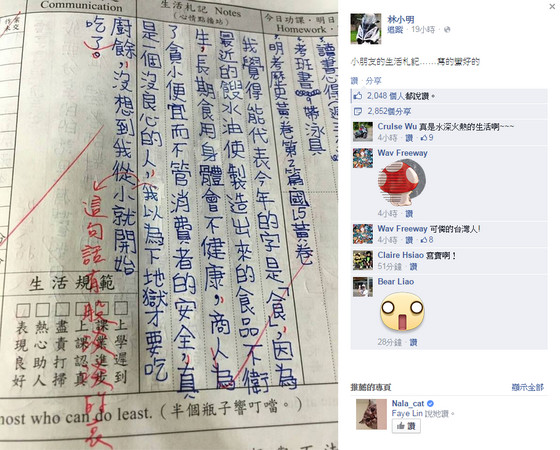 作業未交
Communication
生活札記 Notes
(心情點播站)
今日功課、明日
Homework、
讀書心得
考班書 帶泳具
明考歷史黃卷第2篇國L5黃卷
我覺得能代表今年的字是「食」,因為
最近的餿水油使製造出來的食品不衛
生,長期食用身體會不健康,商人為
了貪小便宜而不管消費者的安全,真
是一個沒良心的人,我以為下地獄才要吃
廚餘,沒想到我從小就開始
吃了。
這句話有股淡淡的哀
生活規範
上學遲到
課業進步
上課認真
盡責打掃
熱心助人
表現良好
most who can do least.(半個瓶子響叮噹。)
林小明
追蹤 · 19小時 ·
小朋友的生活札記……寫的蠻好的
讚 · 分享
2,048 個人都說讚。
2,852個分享
Cruise Wu 真是水深火熱的生活啊~~~
4小時 · 讚 · 9
Wav Freeway
4小時 · 讚
Wav Freeway 可憐的台灣人!
4小時 · 讚 · 8
Claire Hsiao 寫實啊!
51分鐘 · 讚
Bear Liao
28分鐘 · 讚
推薦的專頁
顯示全部
Nala_cat
Faye Lin 說他讚。
讚